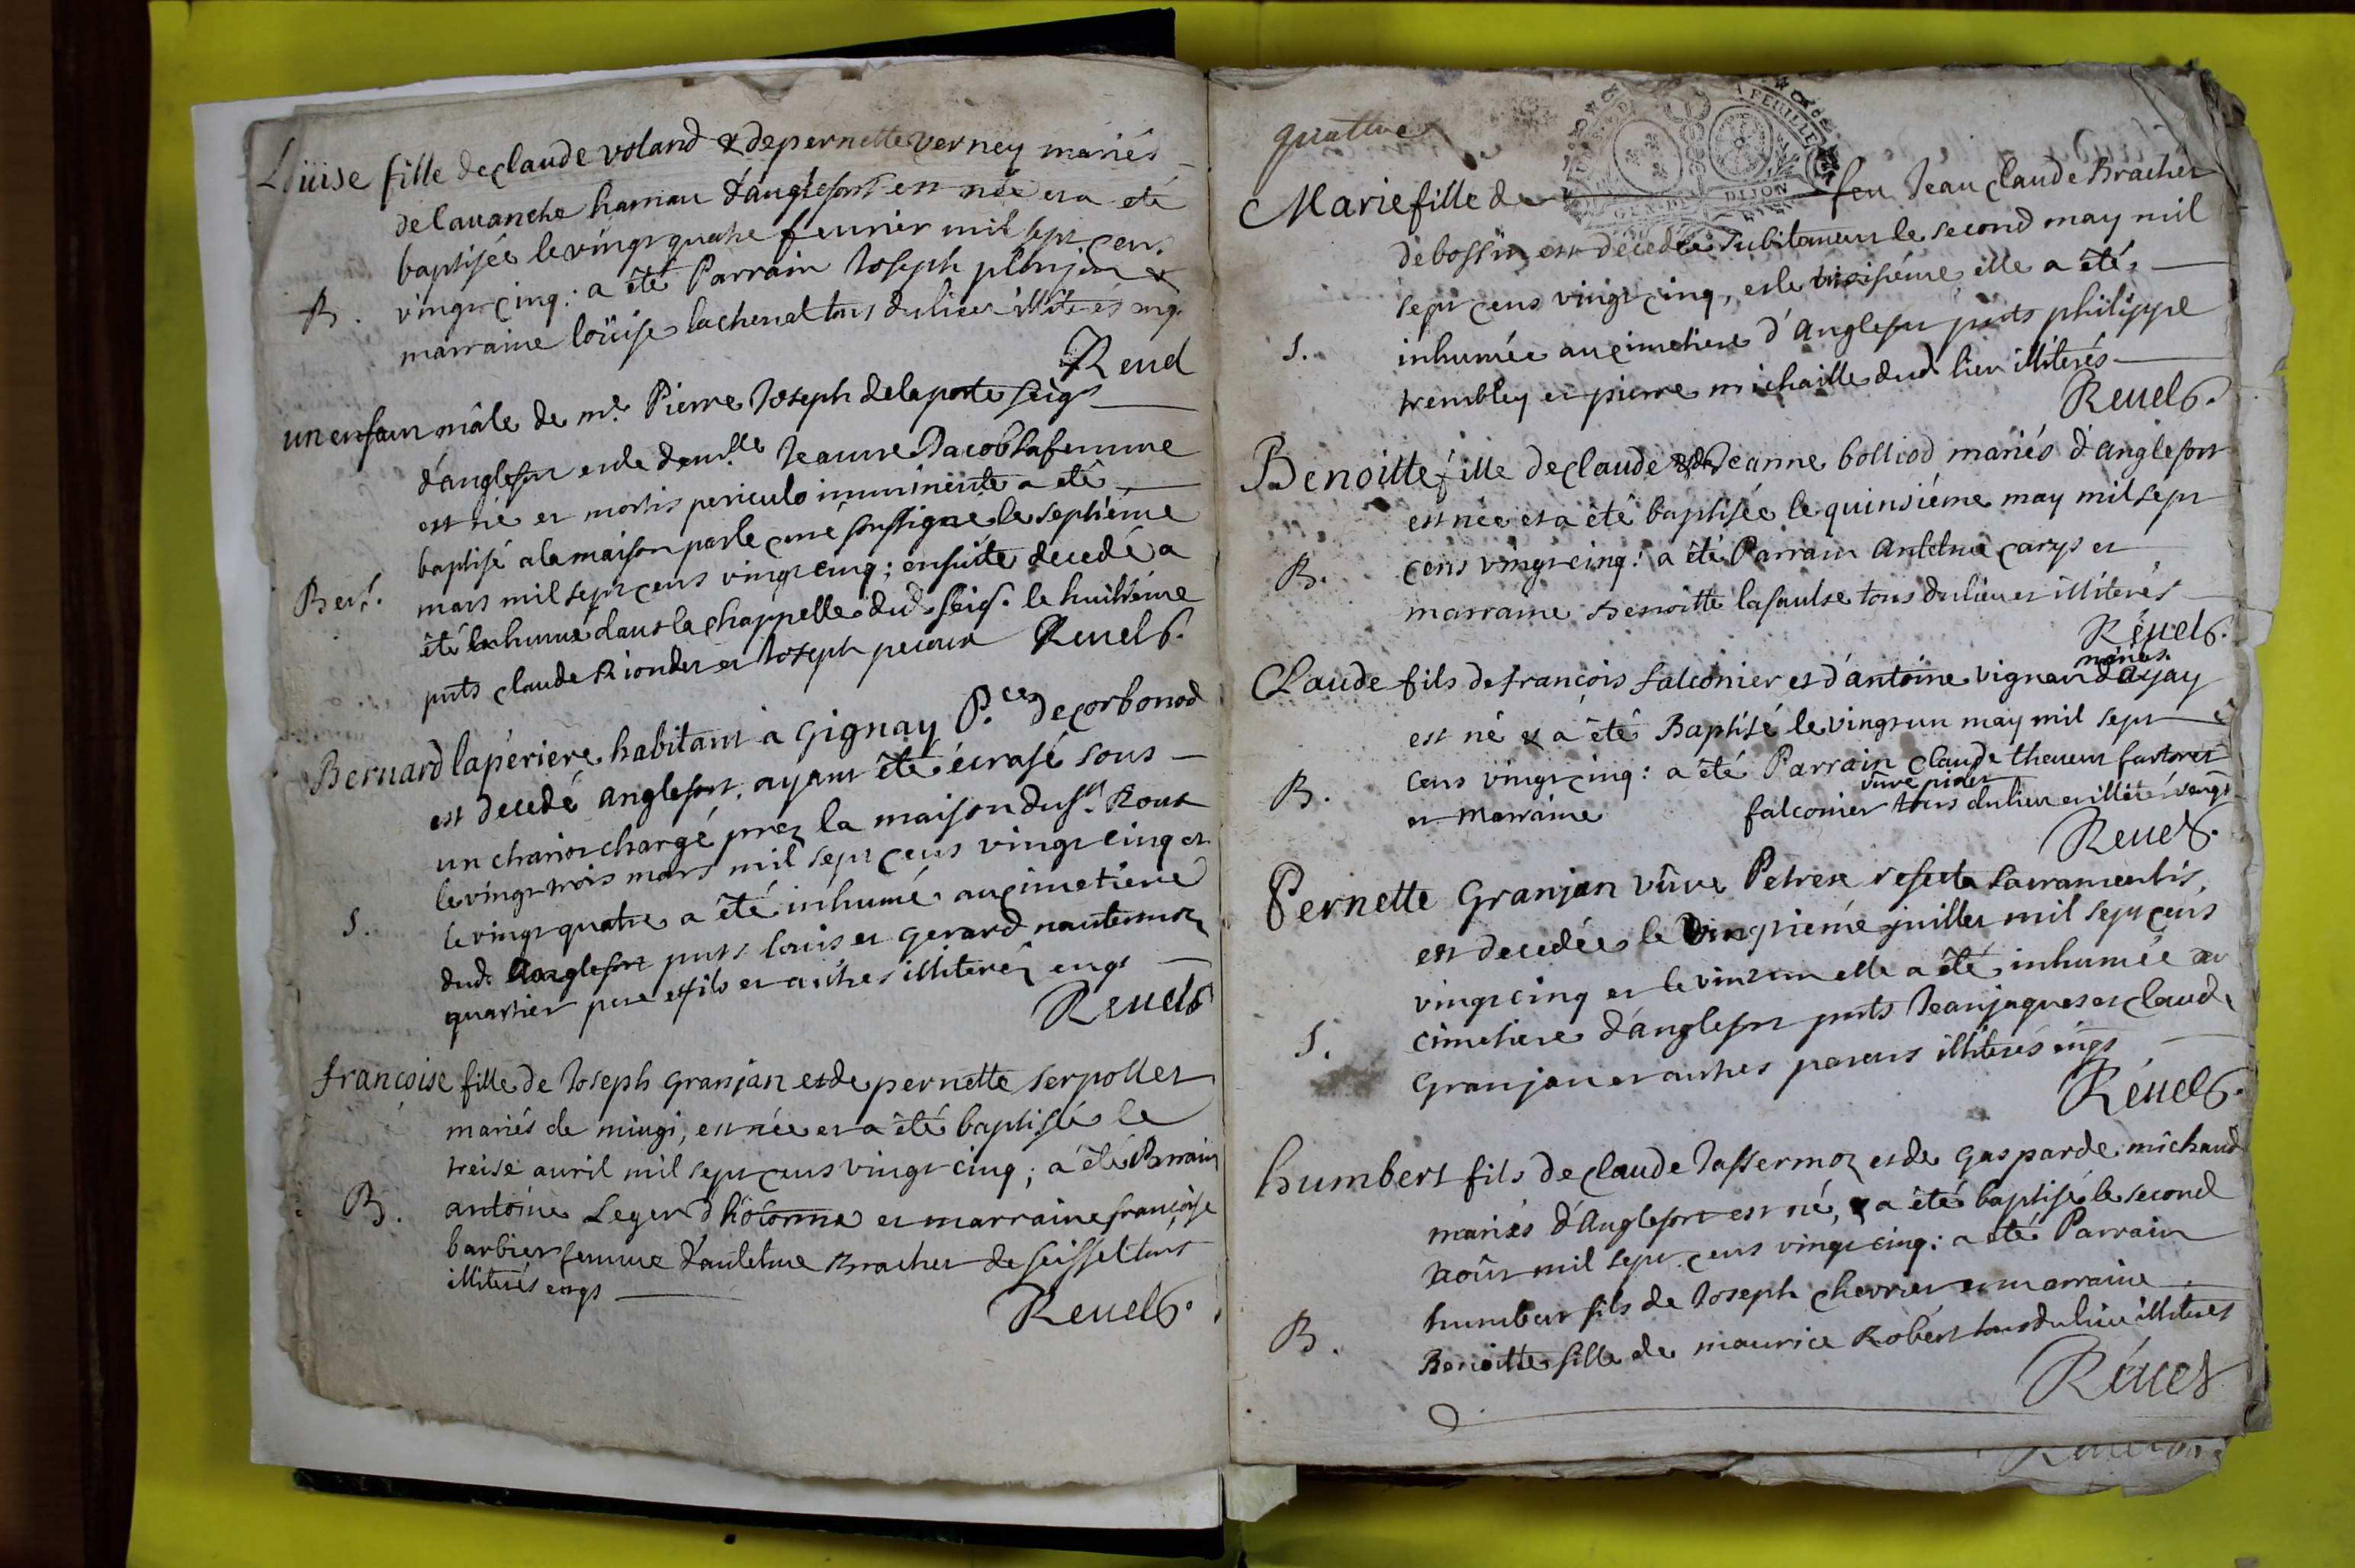 Loüise fille de claude voland & de pernette verney mariés
de lavanche hamau d'anglefort est née et a eté
baptisée le vingt quatre fevrier mil sept cens
B. vingt cinq: a êté Parrain Joseph plonjon &
marraine loüise lachenal tous du lieu illiterés enqs
Revel
un enfant mâle de mr. Pierre Joseph delaporte seigr
d'anglefort et de demlle Jeanne Jacob sa femme
est né et mortis periculo imminente a eté
baptisé a la maison par le curé soussigné le septiéme
B et S. mars mil sept cens vingt cinq; ensuite decedé a
êté inhumé dans la chappelle dud. seigr. le huitiéme
pnts claude Riondet et Joseph Revel C.
Bernard laperiere habitant à Gignay P.ce de corbonod
est decedé anglefort, ayant êté écrasé sous
un chariot chargé prez la maison du sr. Roux
le vingt trois mars mil sept cens vingt cinq et
S. le vingt quatre a êté inhumé au cimetiere
dud. Anglefort pnts louis et gerard nantermoz
quartier pere et fils et autres illiterez enqs
Revel C
françoise fille de Joseph Granjan et de pernette serpollet
mariés de mingi, est née et a êté baptisée le
treise avril mil sept cens vingt cinq; a êté Parrain
B. antoine Leger d'hotonne et marraine françoise
barbier femme d'antelme Bracher de seissel tous
illiterés enqs
Revel C.
quattre
GEN. DE DIJON
Marie fille de feu Jean Claude Bracher
de bossin est decedée subitement le second may mil
sept cens vingt cinq, et le troisiéme elle a êté
S. inhumée au cimetiere d'Anglefort pnts philippe
trembley et pierre michaille dud. lieu illiterés
Revel C.
Benoitte fille de claude & de Jeanne bolliod mariés d'anglefort
est née et a êté baptisée le quinsiéme may mil sept
B. cens vingt cinq: a êté Parrain Antelme carys et
marraine Benoitte lasaulse tous du lieu et illiterés
Révél C.
mariés
Claude fils de françois falconier et d'antoine vignan d'ajay
est né & a êté Baptisé le vingt un may mil sept
B. cens vingt cinq: a êté Parrain Claude thevenin
vûve
et marraine falconier tous du lieu et illiterés enqs
Revel C.
Pernette Granjan vûve Petrese refecta sacramentis,
est decedée le vingtiéme juillet mil sept cens
vingt cinq et le vint un elle a êté inhumée au
S. cimetiere d'anglefort pnts Jean jaques et claude
Granjan et autres parens illiterés enqs
Révél C.
humbert fils de claude Jassermoz et de Gasparde michaud
mariés d'Anglefort est né, & a êté baptisé le second
aoûst mil sept cens vingt cinq: a êté Parrain
humbert fils de Joseph chevrier et marraine
B. Benoitte fille de maurice Robert tous du lieu illiterés
Révél